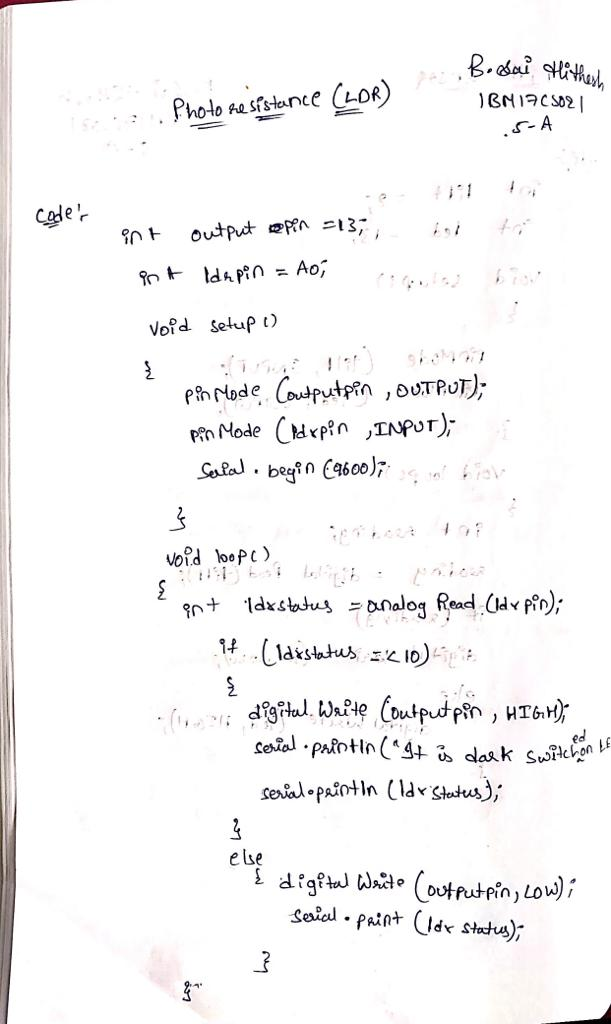 B. Sai Hithesh
1BM17CS021
5-A
Photo resistance (LDR)
Code:-
int output pin = 13;
int ldrpin = A0;
void setup ()
{
pinMode (outputpin , OUTPUT);
pinMode (ldrpin , INPUT);
Serial . begin (9600);
}
void loop()
{
int ldrstatus = analog Read (ldrpin);
if (ldrstatus =< 10)
{
digital Write (outputpin , HIGH);
serial . println ("It is dark switched on LE
serial . println (ldr status);
}
else
{ digital Write (outputpin, LOW);
serial . print (ldr status);
}
}